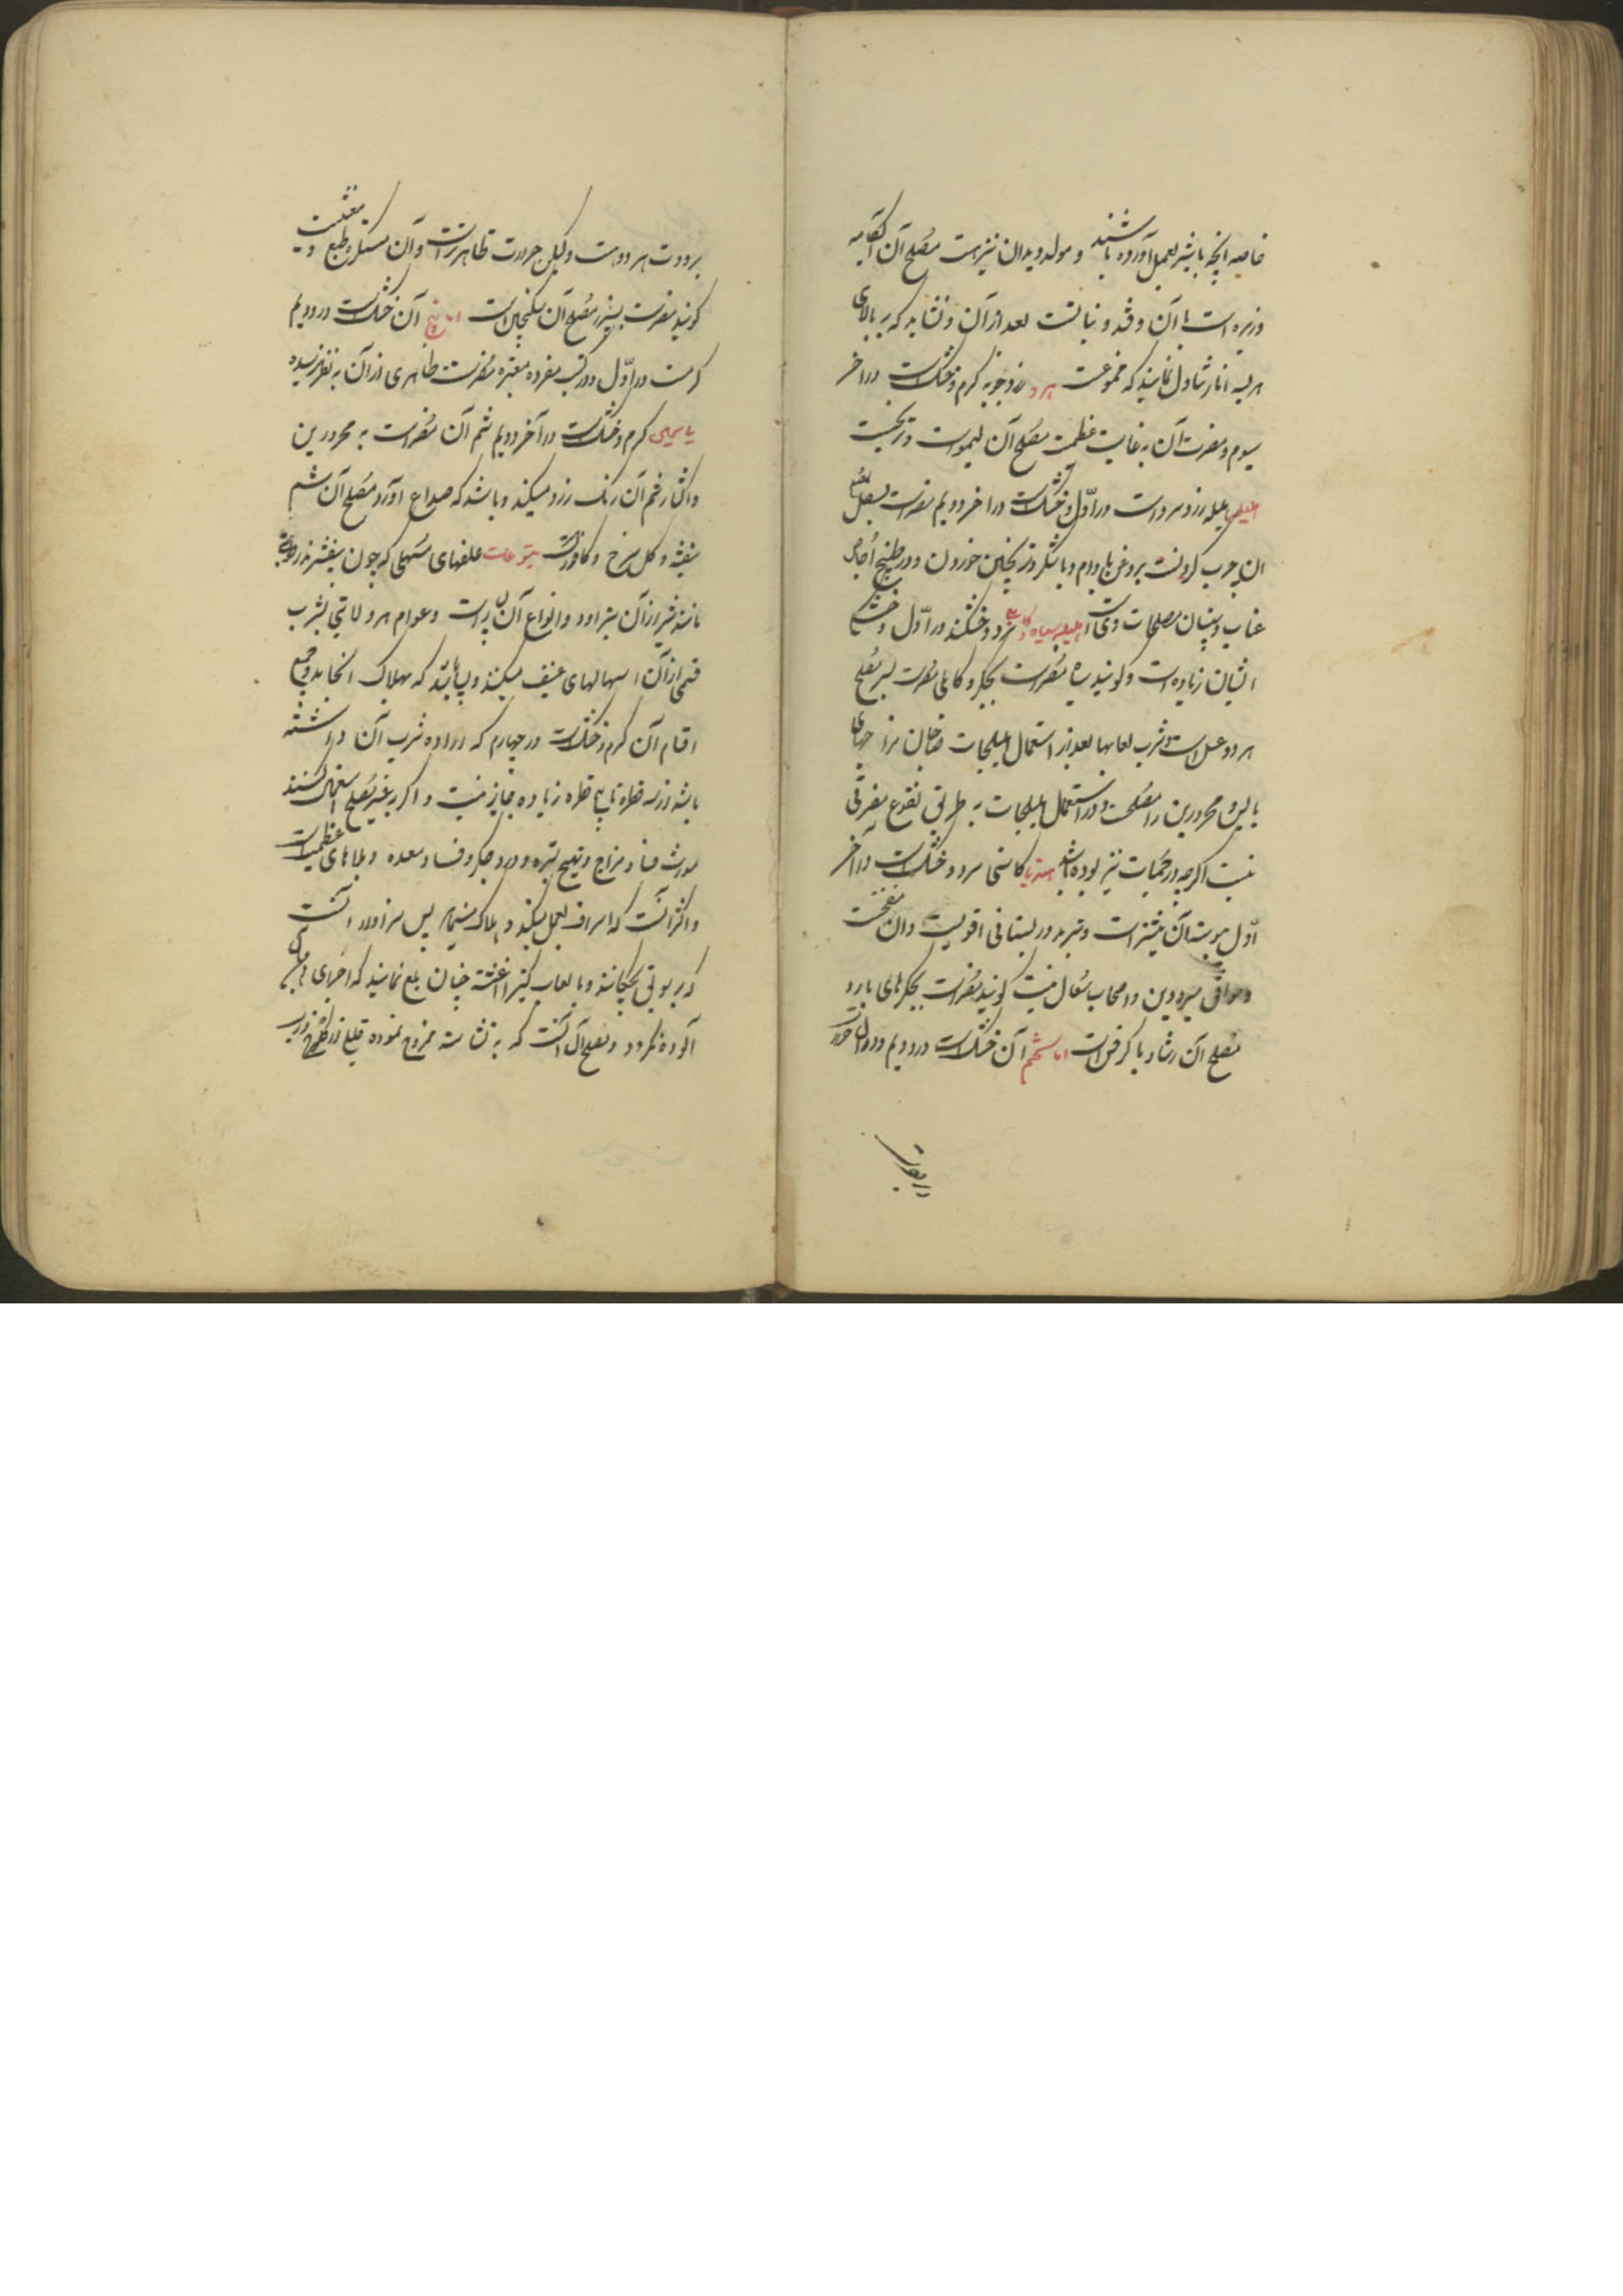 خاصه انچه با شیر بعمل آورده باشند و مولد دیدان نیز هست مصلح آن آبکامه
و زیره است با آن و قند و نباتست بعد از آن و نشاید که بر بالای
هریسه انار تناول نمایند که ممنوعست هرد زردچوبه گرم و خشکست در آخر
سیوم و مضرت آن بغایت عظیمست مصلح آن لیموست و ترنجست
اهلیلج هلیله زرد سرد است در اول و خشکست در آخر دویم مضرست بسفل مصلح
آن چرب کردنست بروغن بادام و با شکر و ترنجبین خوردن و در طبیخ اجاص
عناب و سپستان مصلحات وی است اهلیله سیاه و کابلی سرد و خشکند در اول و خشکی
ایشان زیاده است و گویند سیاه مضرست بجگر و کابلی مضرست بسر مصلح
هر دو عسل است و شرب لعابها بعد از استعمال اهلیلجات صاحبان مزاجهای
یابس و محرورین را مصلحست و در استعمال هلیلجات به طریق نقوع مضرتی
نیست اگرچه در حمیات نیز بوده باشد هندبا کاسنی سرد و خشکست در آخر
اول و بستان آن بیشتر است و تبرید در بستانی اقویست و آن منفخست
و موافق مبرودین و اصحاب سعال نیست گویند مضرست بجگرهای بارد
مصلح آن رشاد یا کرفس است اما تخم آن خشکست در دویم و در اول
در برودت
برودت هر دو هست و لیکن حرارت ظاهرترست و آن مستکره طبع و مغثیست
گویند مضرست بسپرز مصلح آن سکنجبین است اما بیخ آن خشکست در دویم
گرمست در اول و در کتب مفرده معتبره مضرت ظاهری از آن به نظر نرسیده
یاسمین گرم و خشکست در آخر دویم شم آن مضر است به محرورین
و اکثار شم آن رنگ زرد میکند و باشد که صداع آورد مصلح آن شم
بنفشه و گل سرخ و کافورست یتوعات علفهای سهلی که چون بیفشرند رطوبتی
مانند شیر از آن بتراود و انواع آن بسیار است و عوام هر ولایتی بشرب
قسمی از آن اسهالهای عنیف میکنند و بسا باشد که بهلاک انجامد و جمیع
اقسام آن گرم و خشکست در چهارم که اراده شرب آن داشته
باشد از سه قطره تا پنج قطره زیاده مجاز نیست و اگر به غیر مصلح استعمال کنند
مورث فساد مزاج و تهیج بشره و درد جگر و فساد معده و بلاهای عظیمست
و اکثر آنست که اسراف بعمل میکند و هلاک مینماید پس سزاوار آنست
که بر بوتی بچکانند و با لعاب کتیرا آغشته چنان بلع نمایند که اجزای دهن
آلوده نگردد و مصلح آن آنست که به نشاسته ممزوج نموده قلیلی از آن